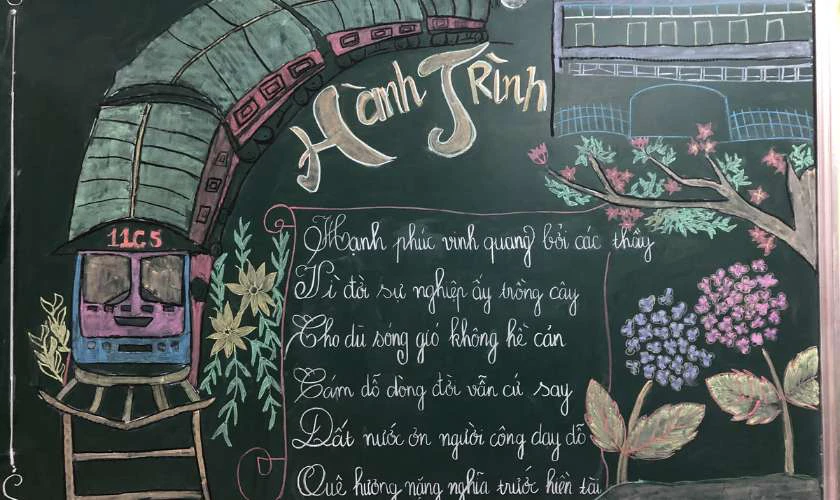 Hành Trình
11C5
Hạnh phúc vinh quang bởi các thầy
Vì đời sự nghiệp ấy trồng cây
Cho dù sóng gió không hề cản
Cám dỗ dòng đời vẫn cứ say
Đất nước ơn người công dạy dỗ
Quê hương nặng nghĩa trước hiền tài